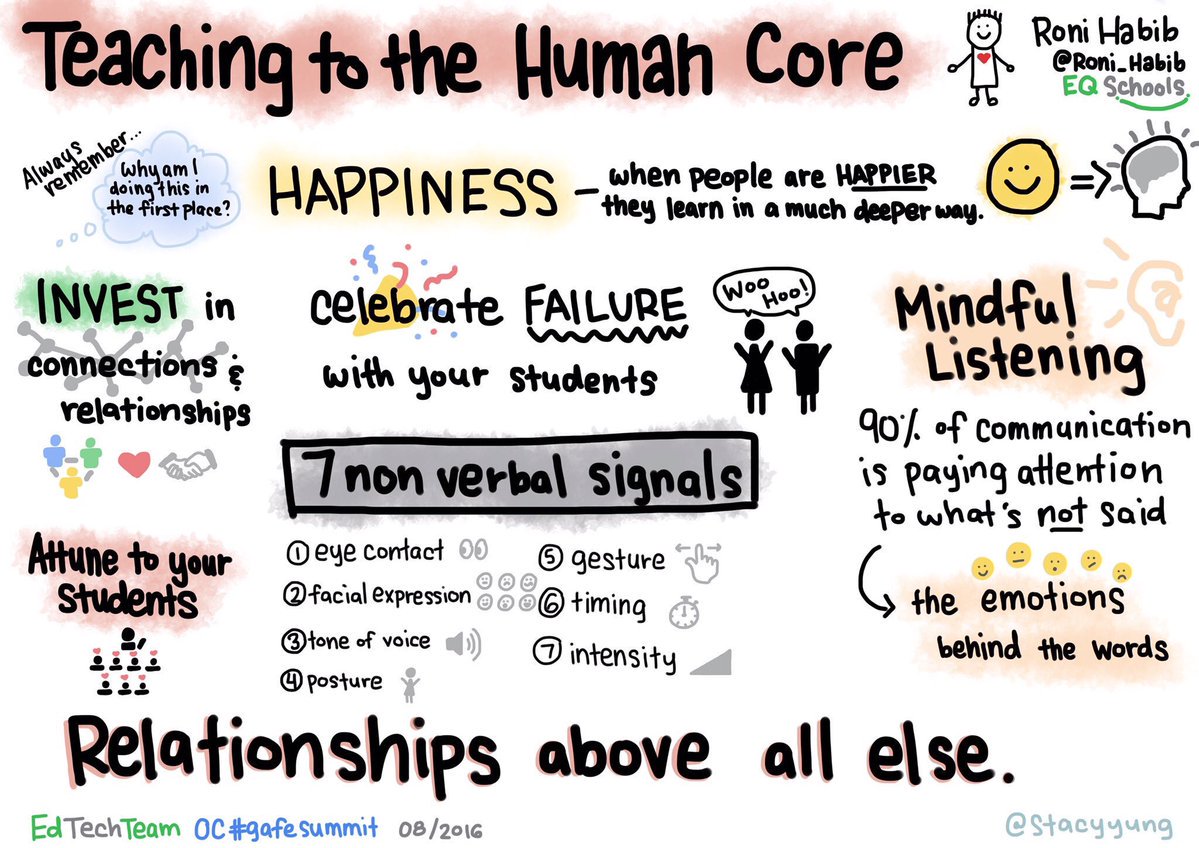 Teaching to the Human Core
Roni Habib
@Roni_Habib
EQ Schools
Always
remember...
Why am I
doing this in
the first place?
HAPPINESS – when people are HAPPIER
they learn in a much deeper way.
=>
INVEST in
connections &
relationships
celebrate FAILURE
with your students
Woo
Hoo!
Mindful
Listening
90% of communication
is paying attention
to what's not said
the emotions
behind the words
7 non verbal signals
① eye contact
② facial expression
③ tone of voice
④ posture
⑤ gesture
⑥ timing
⑦ intensity
Attune to your
students
Relationships above all else.
EdTechTeam OC#gafesummit 08/2016
@stacyyung